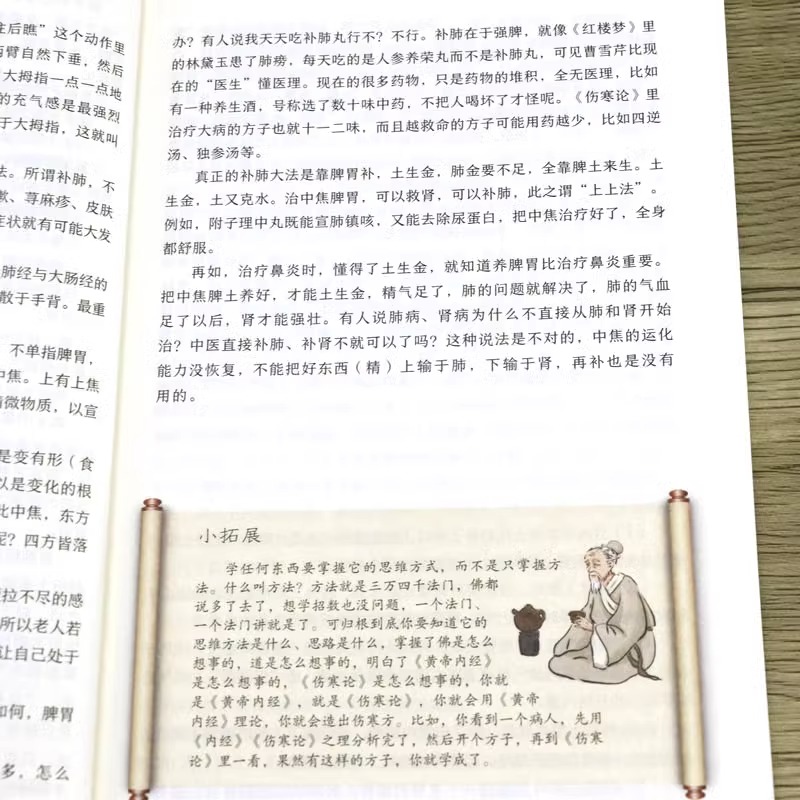 后瞧”这个动作里
两臂自然下垂，然后
大拇指一点一点地
的充气感是最强烈
于大拇指，这就叫
法。所谓补肺，不
嗽、荨麻疹、皮肤
症状就有可能大发
肺经与大肠经的
散于手背。最重
不单指脾胃，
中焦。上有上焦
精微物质，以宣
是变有形（食
以是变化的根
此中焦，东方
呢？四方皆落
拉不尽的感
所以老人若
让自己处于
如何，脾胃
多，怎么
办？有人说我天天吃补肺丸行不？不行。补肺在于强脾，就像《红楼梦》里
的林黛玉患了肺痨，每天吃的是人参养荣丸而不是补肺丸，可见曹雪芹比现
在的“医生”懂医理。现在的很多药物，只是药物的堆积，全无医理，比如
有一种养生酒，号称选了数十味中药，不把人喝坏了才怪呢。《伤寒论》里
治疗大病的方子也就十一二味，而且越救命的方子可能用药越少，比如四逆
汤、独参汤等。
真正的补肺大法是靠脾胃补，土生金，肺金要不足，全靠脾土来生。土
生金，土又克水。治中焦脾胃，可以救肾，可以补肺，此之谓“上上法”。
例如，附子理中丸既能宣肺镇咳，又能去除尿蛋白，把中焦治疗好了，全身
都舒服。
再如，治疗鼻炎时，懂得了土生金，就知道养脾胃比治疗鼻炎重要。
把中焦脾土养好，才能土生金，精气足了，肺的问题就解决了，肺的气血
足了以后，肾才能强壮。有人说肺病、肾病为什么不直接从肺和肾开始
治？中医直接补肺、补肾不就可以了吗？这种说法是不对的，中焦的运化
能力没恢复，不能把好东西（精）上输于肺，下输于肾，再补也是没有
用的。
小拓展
学任何东西要掌握它的思维方式，而不是只掌握方
法。什么叫方法？方法就是三万四千法门，佛都
说多了去了，想学招数也没问题，一个法门、
一个法门讲就是了。可归根到底你要知道它的
思维方法是什么、思路是什么，掌握了佛是怎么
想事的，道是怎么想事的，明白了《黄帝内经》
是怎么想事的，《伤寒论》是怎么想事的，你就
是《黄帝内经》，就是《伤寒论》，你就会用《黄帝
内经》理论，你就会造出伤寒方。比如，你看到一个病人，先用
《内经》《伤寒论》之理分析完了，然后开个方子，再到《伤寒
论》里一看，果然有这样的方子，你就学成了。